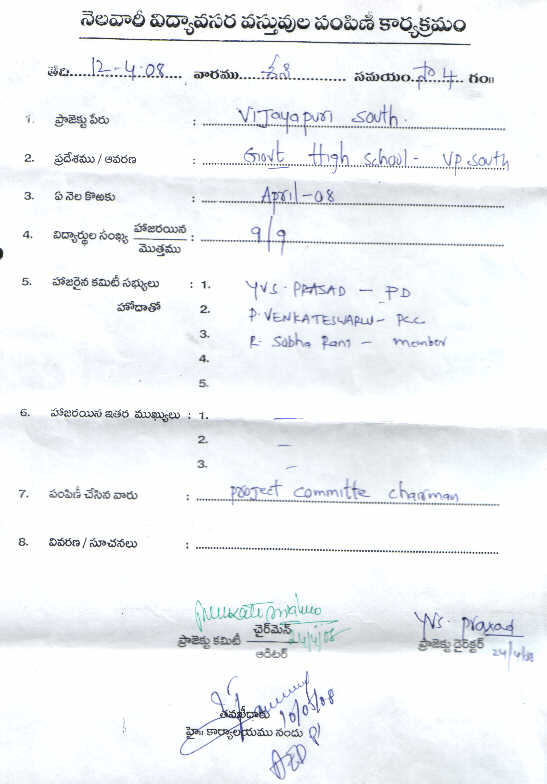 నెలవారీ విద్యావసర వస్తువుల పంపిణీ కార్యక్రమం
తేది 12-4-08 వారము శని సమయం సా 4 గం॥
1. ప్రాజెక్టు పేరు : Vijayapuri South.
2. ప్రదేశము / ఆవరణ : Govt High School - VP South
3. ఏ నెల కొఱకు : April-08
4. విద్యార్థుల సంఖ్య హాజరయిన / మొత్తము : 9/9
5. హాజరైన కమిటీ సభ్యులు : 1. YVS. PRASAD - PD
హోదాతో 2. P. VENKATESWARLU - PCC
3. R. Sobha Rani - member
4.
5.
6. హాజరయిన ఇతర ముఖ్యులు : 1. —
2. —
3. —
7. పంపిణీ చేసిన వారు : project committe chairman
8. వివరణ / సూచనలు :
ప్రాజెక్టు కమిటీ చైర్‌మెన్ 24/4/08
ఆడిటర్
YVS. Prasad
ప్రాజెక్టు డైరెక్టర్ 24/4/08
తనఖీదారు 10/05/08
హై॥ కార్యాలయము నందు